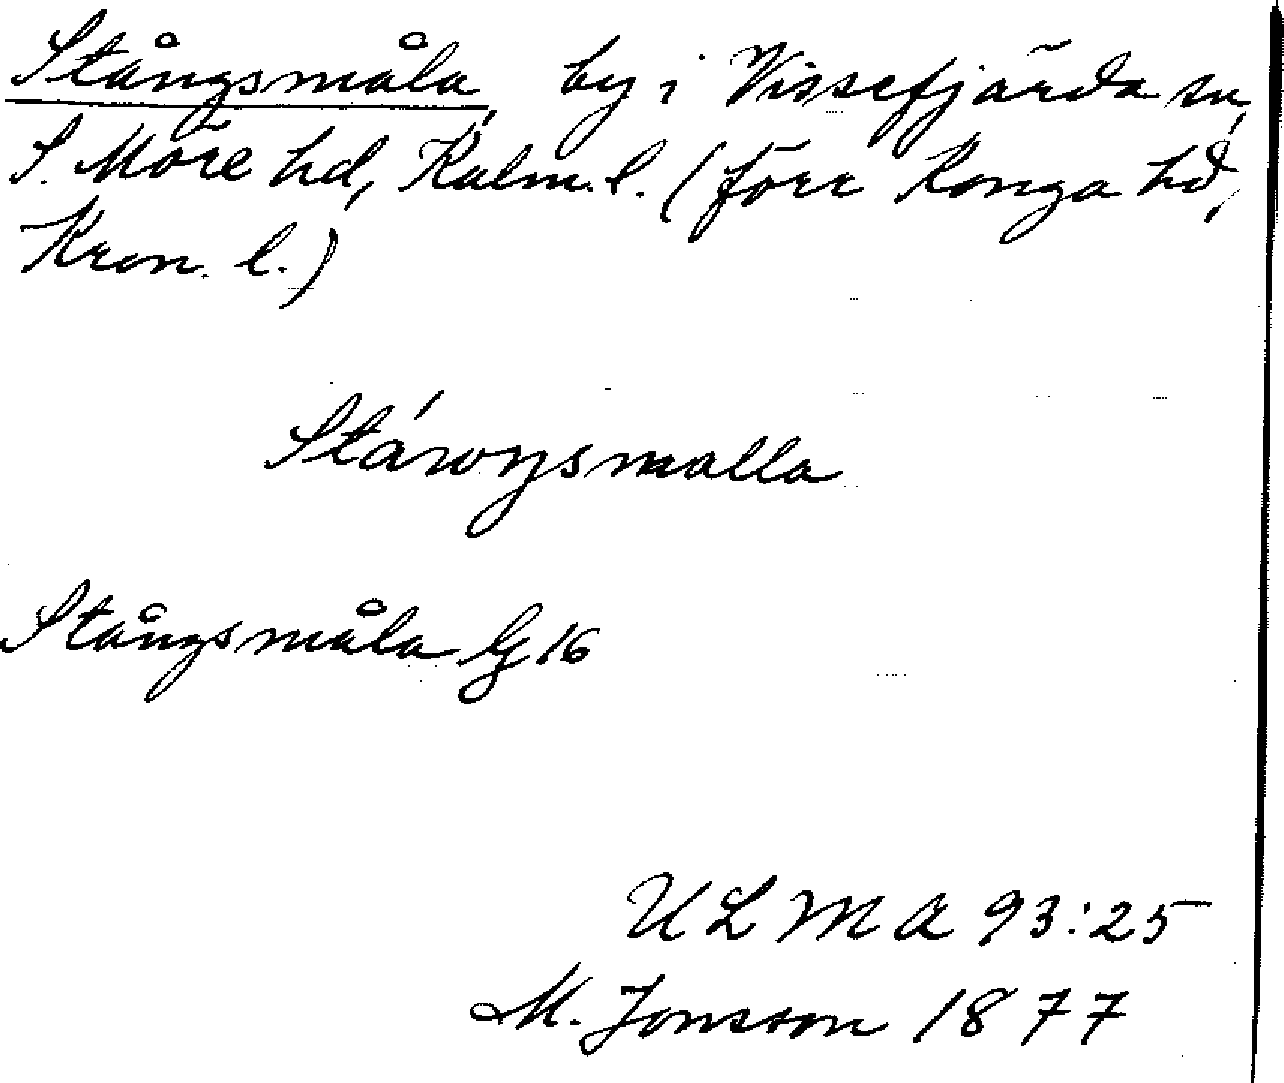 Stångsmåla, by i Vissefjärda sn,
S. Möre hd, Kalm. l. (förr Konga hd,
Kron. l.)
Stångsmåla G 16
ULMA 93:25
M. Jonsson 1877